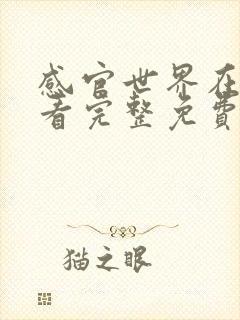 感官世界在
看完整免費
猫之眼